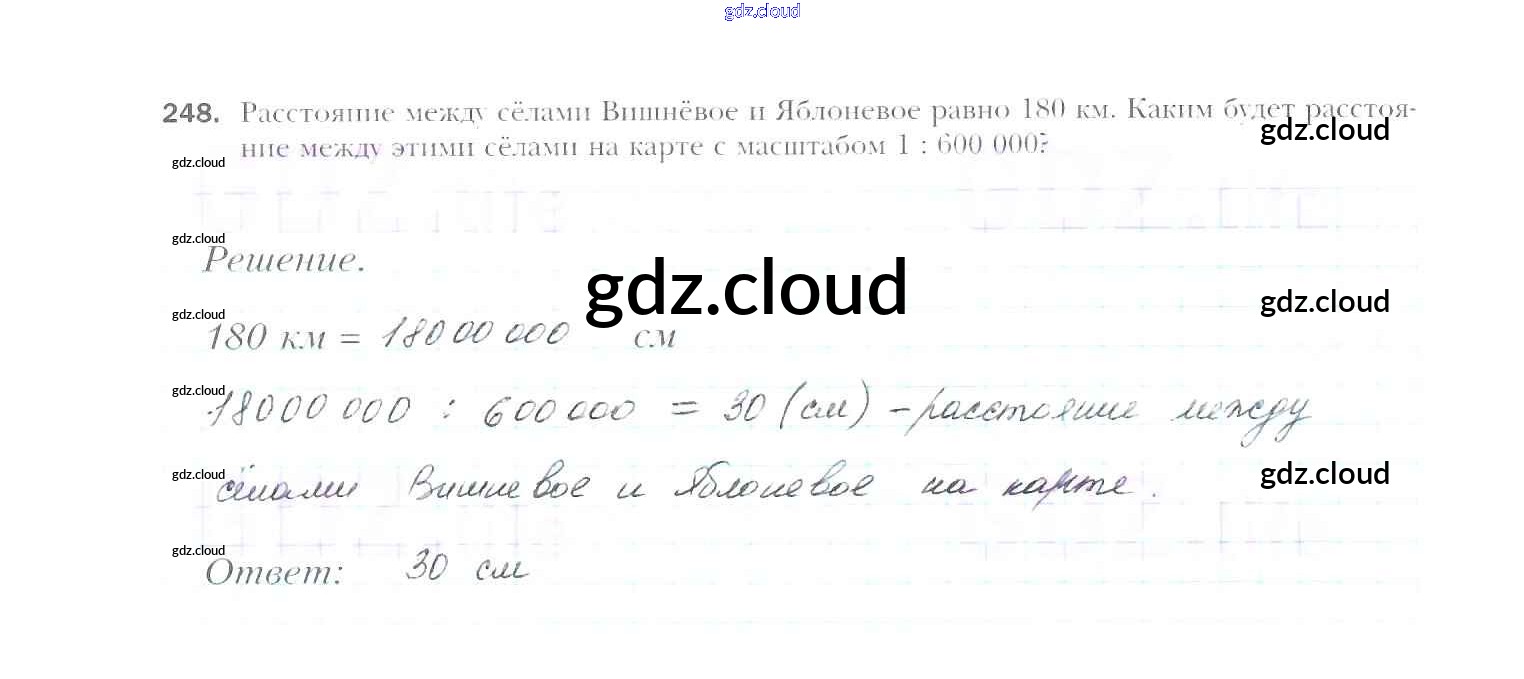 gdz.cloud
248. Расстояние между сёлами Вишнёвое и Яблоневое равно 180 км. Каким будет расстоя-
gdz.cloud
ние между этими сёлами на карте с масштабом 1 : 600 000?
gdz.cloud
gdz.cloud
Решение.
gdz.cloud
gdz.cloud
gdz.cloud
180 км = 18000 000 см
gdz.cloud
18000 000 : 600 000 = 30 (см) - расстояние между
gdz.cloud
сёлами Вишневое и Яблоневое на карте.
gdz.cloud
gdz.cloud
Ответ: 30 см